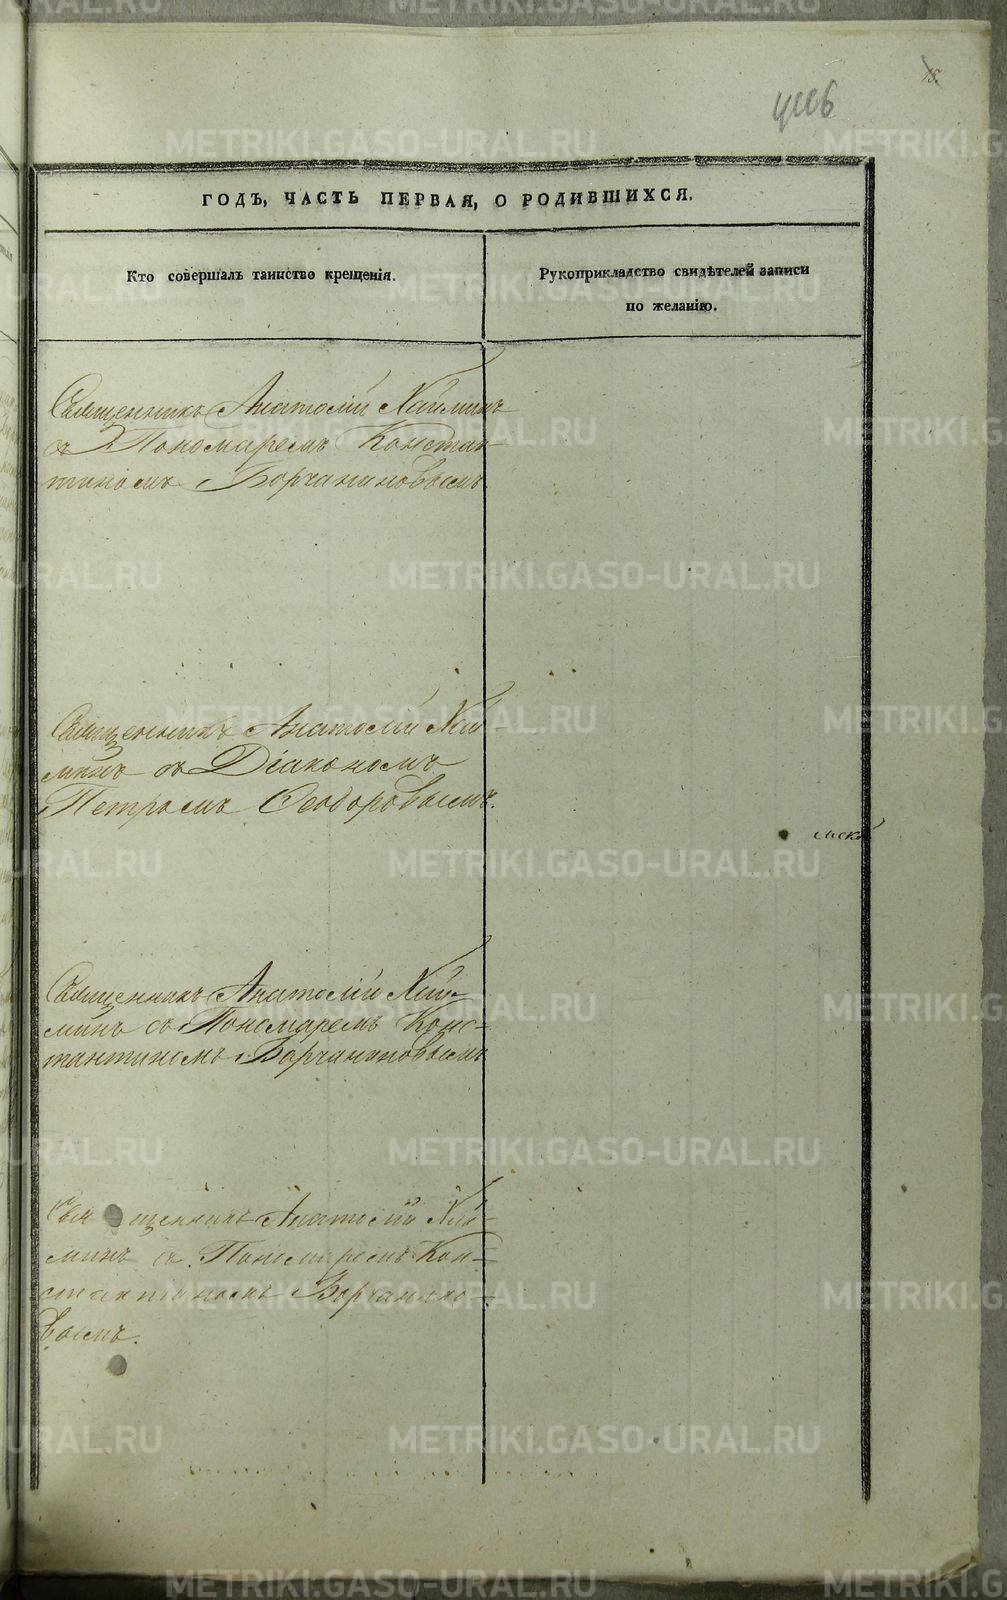 15.
ГОДЪ, ЧАСТЬ ПЕРВАЯ, О РОДИВШИХСЯ.
Кто совершалъ таинство крещенія.
Рукоприкладство свидѣтелей записи
по желанію.
Священникъ Анатолій Хайминъ
съ Пономаремъ Констан
тиномъ Борчаниновымъ
Священникъ Анатолій Хай-
минъ съ Діакономъ
Петромъ Ѳеодоровымъ.
Священникъ Анатолій Хай-
минъ съ Пономаремъ Конс-
тантиномъ Борчаниновымъ
Священникъ Анатолій Хай-
минъ съ Пономаремъ Кон-
стантиномъ Борчанино-
вымъ.
METRIKI.GASO-URAL.RU